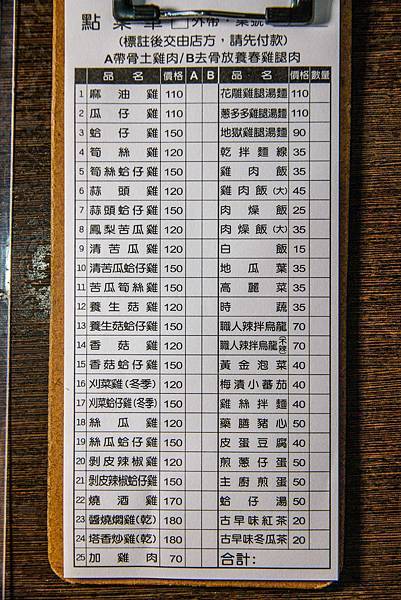 點菜單 外帶 桌號
(標註後交由店方，請先付款)
A帶骨土雞肉/B去骨放養春雞腿肉
品名 價格 A B 品名 價格 數量
1 麻油雞 110 花雕雞腿湯麵 110
2 瓜仔雞 110 蔥多多雞腿湯麵 110
3 蛤仔雞 150 地獄雞腿湯麵 90
4 筍絲雞 120 乾拌麵線 35
5 筍絲蛤仔雞 150 雞肉飯 35
6 蒜頭雞 120 雞肉飯(大) 45
7 蒜頭蛤仔雞 150 肉燥飯 25
8 鳳梨苦瓜雞 120 肉燥飯(大) 35
9 清苦瓜雞 120 白飯 15
10 清苦瓜蛤仔雞 150 地瓜葉 35
11 苦瓜筍絲雞 150 高麗菜 35
12 養生菇雞 120 時蔬 35
13 養生菇蛤仔雞 150 職人辣拌烏龍 70
14 香菇雞 120 職人辣拌烏龍(不辣) 70
15 香菇蛤仔雞 150 黃金泡菜 40
16 刈菜雞(冬季) 120 梅漬小蕃茄 40
17 刈菜蛤仔雞(冬季) 150 雞絲拌麵 40
18 絲瓜雞 120 藥膳豬心 50
19 絲瓜蛤仔雞 150 皮蛋豆腐 40
20 剝皮辣椒雞 120 煎蔥仔蛋 50
21 剝皮辣椒蛤仔雞 150 主廚煎蛋 50
22 燒酒雞 170 蛤仔湯 50
23 醬燒燜雞(乾) 180 古早味紅茶 20
24 塔香炒雞(乾) 180 古早味冬瓜茶 20
25 加雞肉 70 合計: